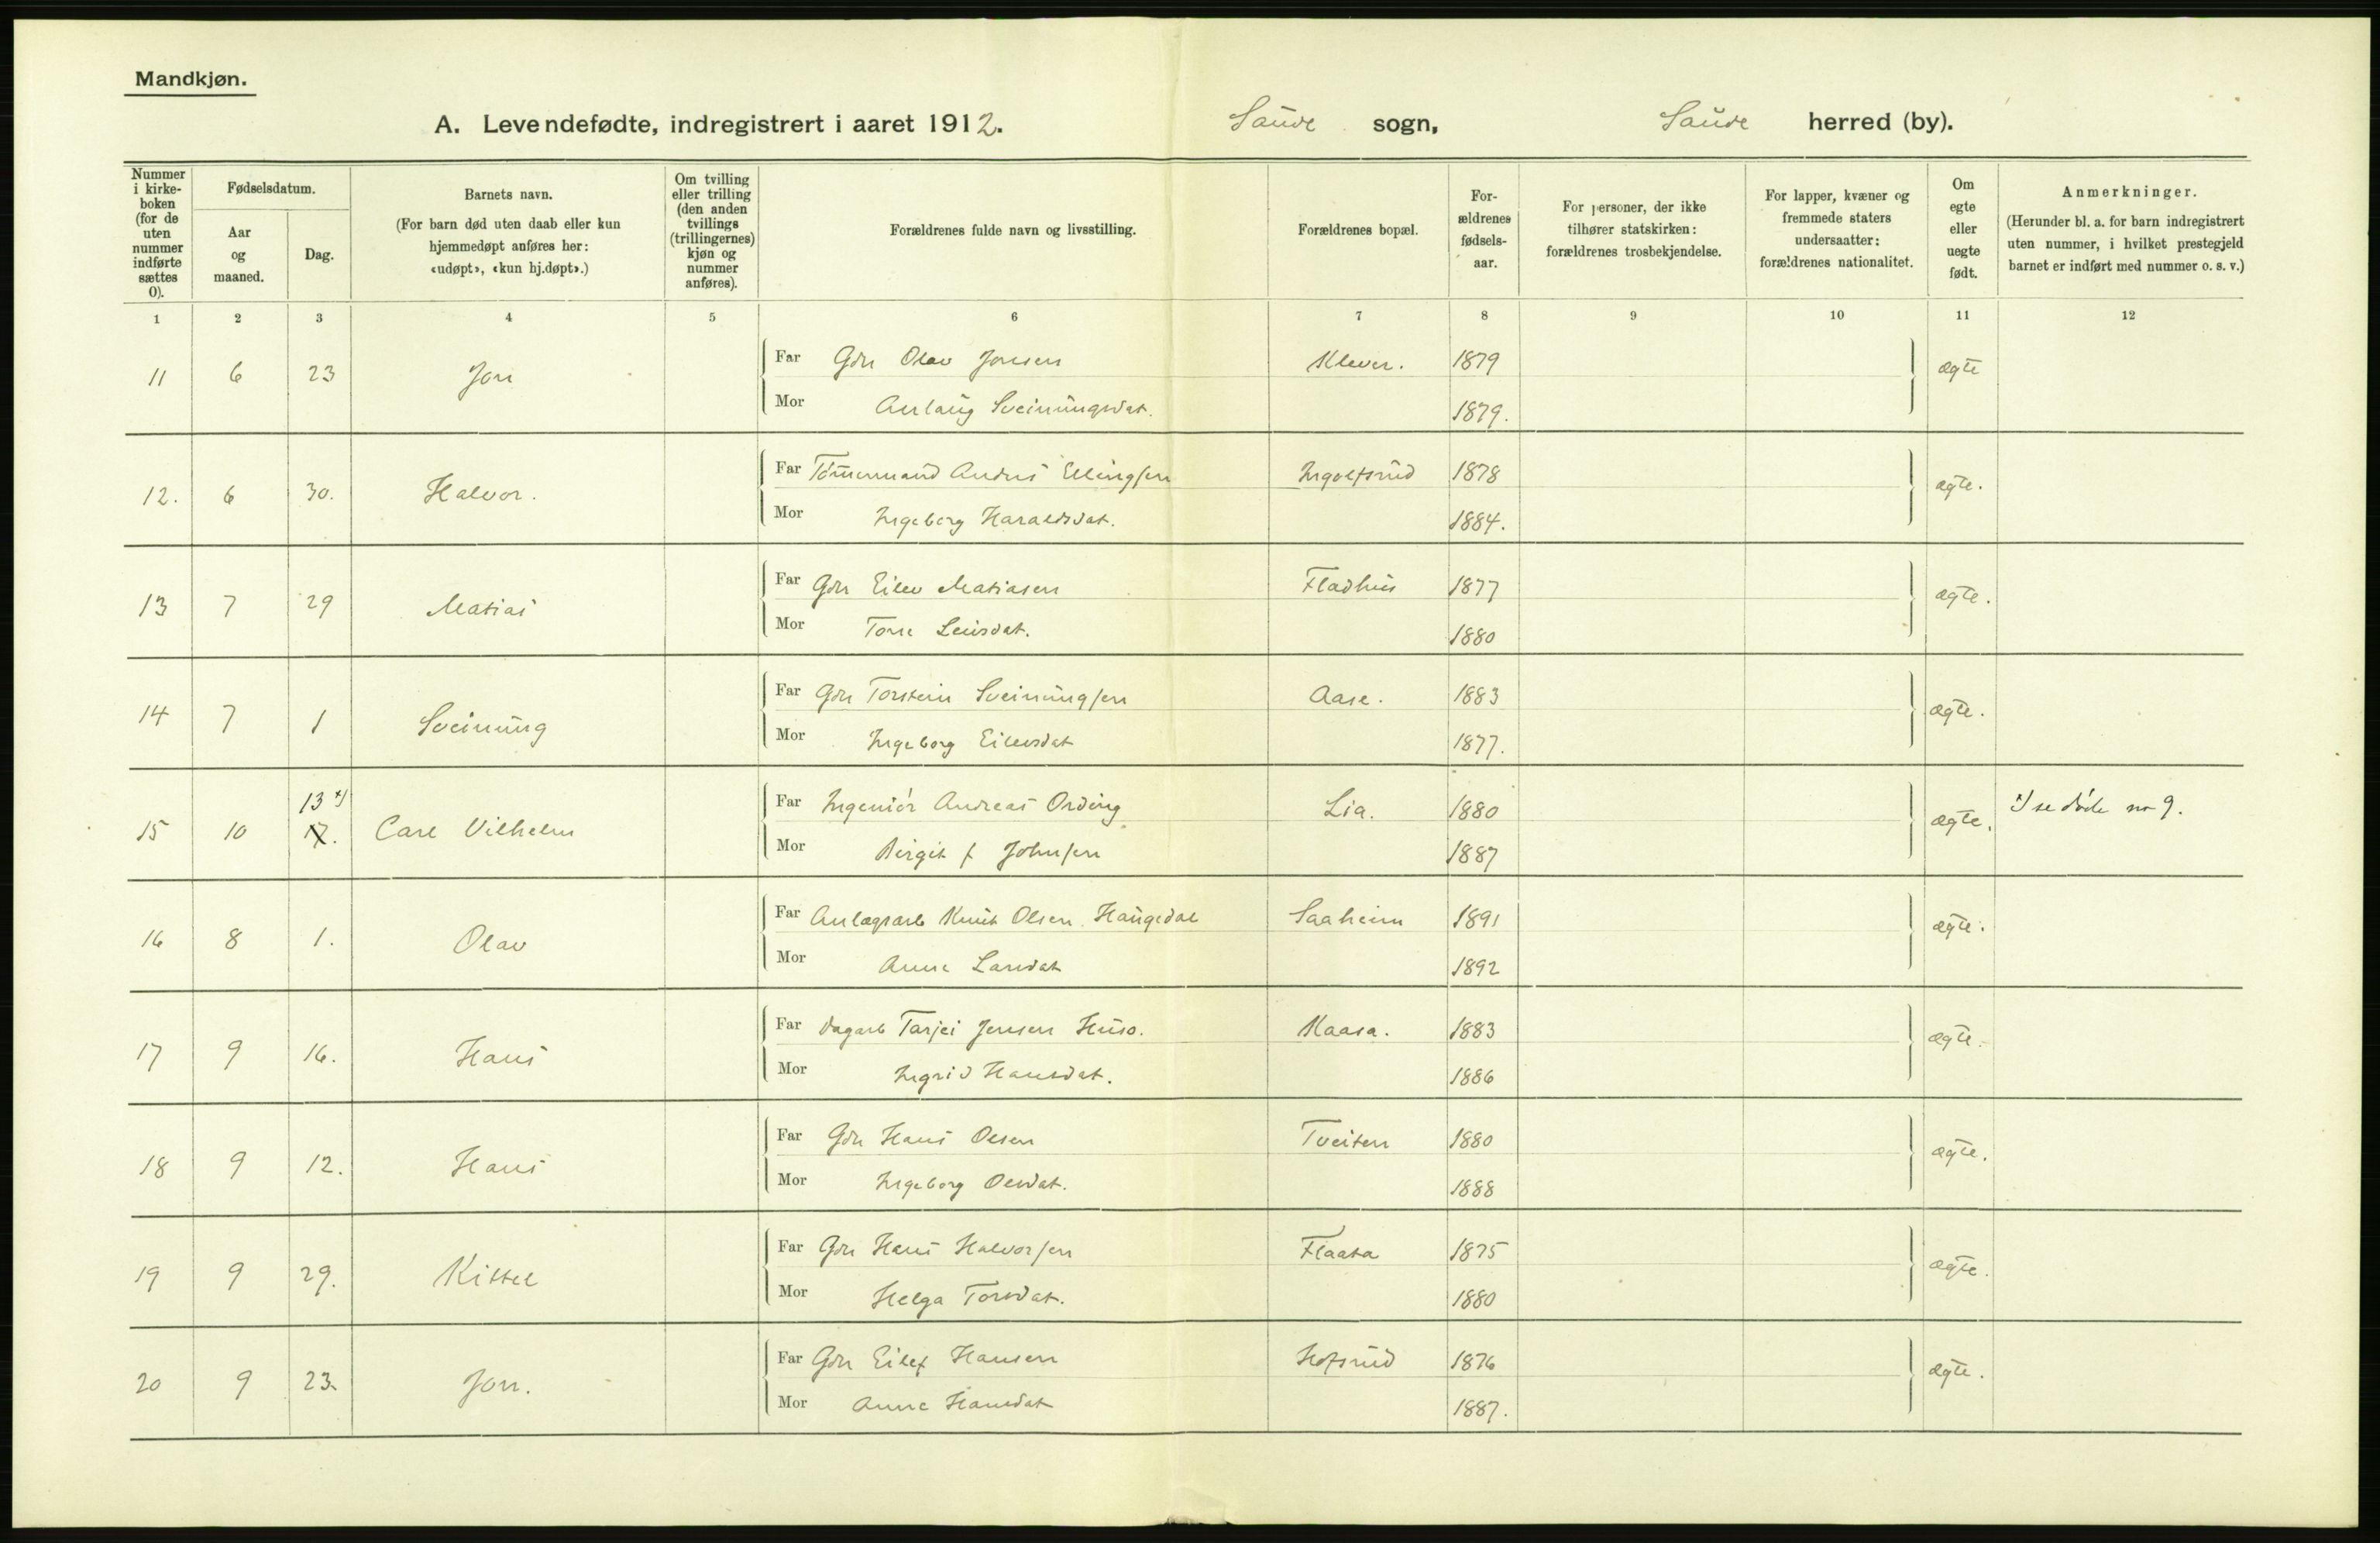 Mandkjøn.
A. Levendefødte, indregistrert i aaret 1912. Saude sogn, Saude herred (by).
Nummer i kirkeboken (for de uten nummer indførte sættes 0).
Fødselsdatum.
Aar og maaned.
Dag.
Barnets navn.
(For barn død uten daab eller kun hjemmedøpt anføres her: «udøpt», «kun hj.døpt».)
Om tvilling eller trilling (den anden tvillings (trillingernes) kjøn og nummer anføres).
Forældrenes fulde navn og livsstilling.
Forældrenes bopæl.
Forældrenes fødselsaar.
For personer, der ikke tilhører statskirken: forældrenes trosbekjendelse.
For lapper, kvæner og fremmede staters undersaatter: forældrenes nationalitet.
Om egte eller uegte født.
Anmerkninger.
(Herunder bl. a. for barn indregistrert uten nummer, i hvilket prestegjeld barnet er indført med nummer o. s. v.)
1 2 3 4 5 6 7 8 9 10 11 12
11 6 23 Jon Far Gdr Olav Jonsen Klever. 1879 ægte
Mor Anlaug Sveinungsdat. 1879.
12. 6 30. Halvor. Far Tømmermand Andres Ellingsen Ingolfsrud 1878 ægte.
Mor Ingeborg Haraldsdat. 1884.
13 7 29 Matias Far Gdr Eilev Matiasen Fladhus 1877 ægte.
Mor Tone Leivsdat. 1880
14 7 1 Sveinung Far Gdr Torstein Sveinungsen Aase. 1883 ægte.
Mor Ingeborg Eilevsdat 1877.
13 x)
15 10 17. Carl Vilhelm Far Ingeniør Andreas Ording Lia. 1880 ægte. x) se døde no 9.
Mor Birgit f Johnsen 1887
16 8 1. Olav Far Anlægsarb Knut Olsen Haugedal Saaheim 1891 ægte.
Mor Anne Larsdat 1892
17 9 16. Hans Far Dagarb Tarjei Jensen Huso. Kaasa. 1883 ægte.
Mor Ingrid Hansdat. 1886
18 9 12. Hans Far Gdr Hans Olsen Tveiten 1880 ægte.
Mor Ingeborg Olsdat. 1888
19 9 29. Kittel Far Gdr Hans Halvorsen Flaata 1875 ægte.
Mor Helga Torsdat. 1880
20 9 23. Jon. Far Gdr Eilef Hansen Hofsrud 1876 ægte.
Mor Anne Hansdat 1887.